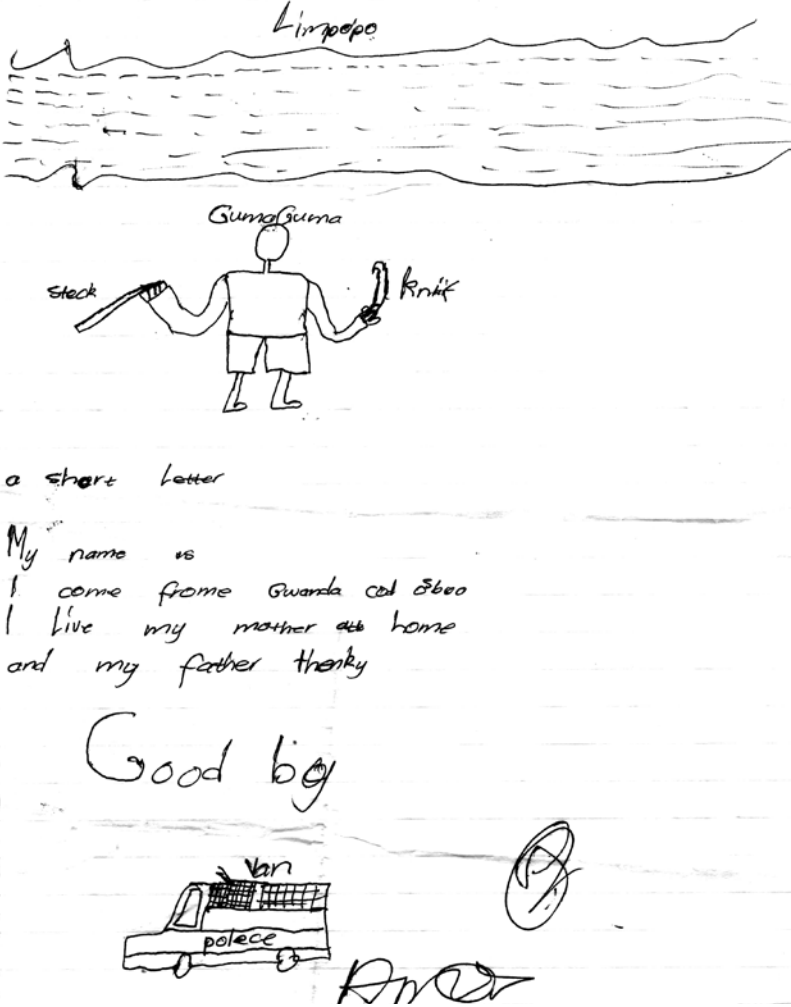 Limpopo
GumaGuma
steck
knif
a short Letter
My name is
I come frome Gwanda
I Live my mother home
and my father thenky
Good by
Van
polece